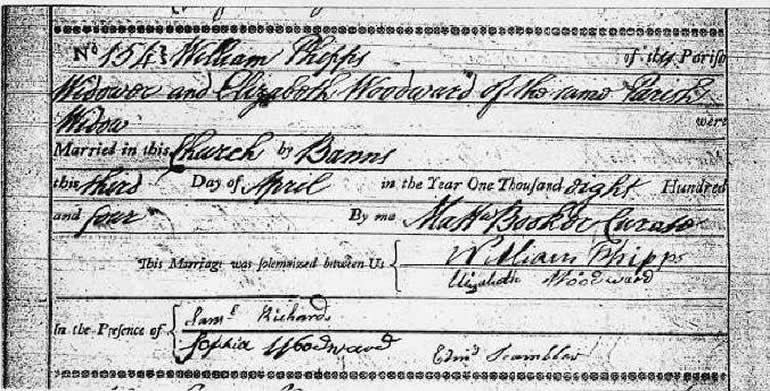 No 1543 William Phipps of this Parish
Widower and Elizabeth Woodward of the same Parish
Widow were
Married in this Church by Banns
this third Day of April in the Year One Thousand eight Hundred
and four By me Mattw Booker Curate
This Marriage was solemnized between Us { William Phipps
Elizabeth Woodward
In the Presence of { Saml Richards
Sophia Woodward Edmd Scambler